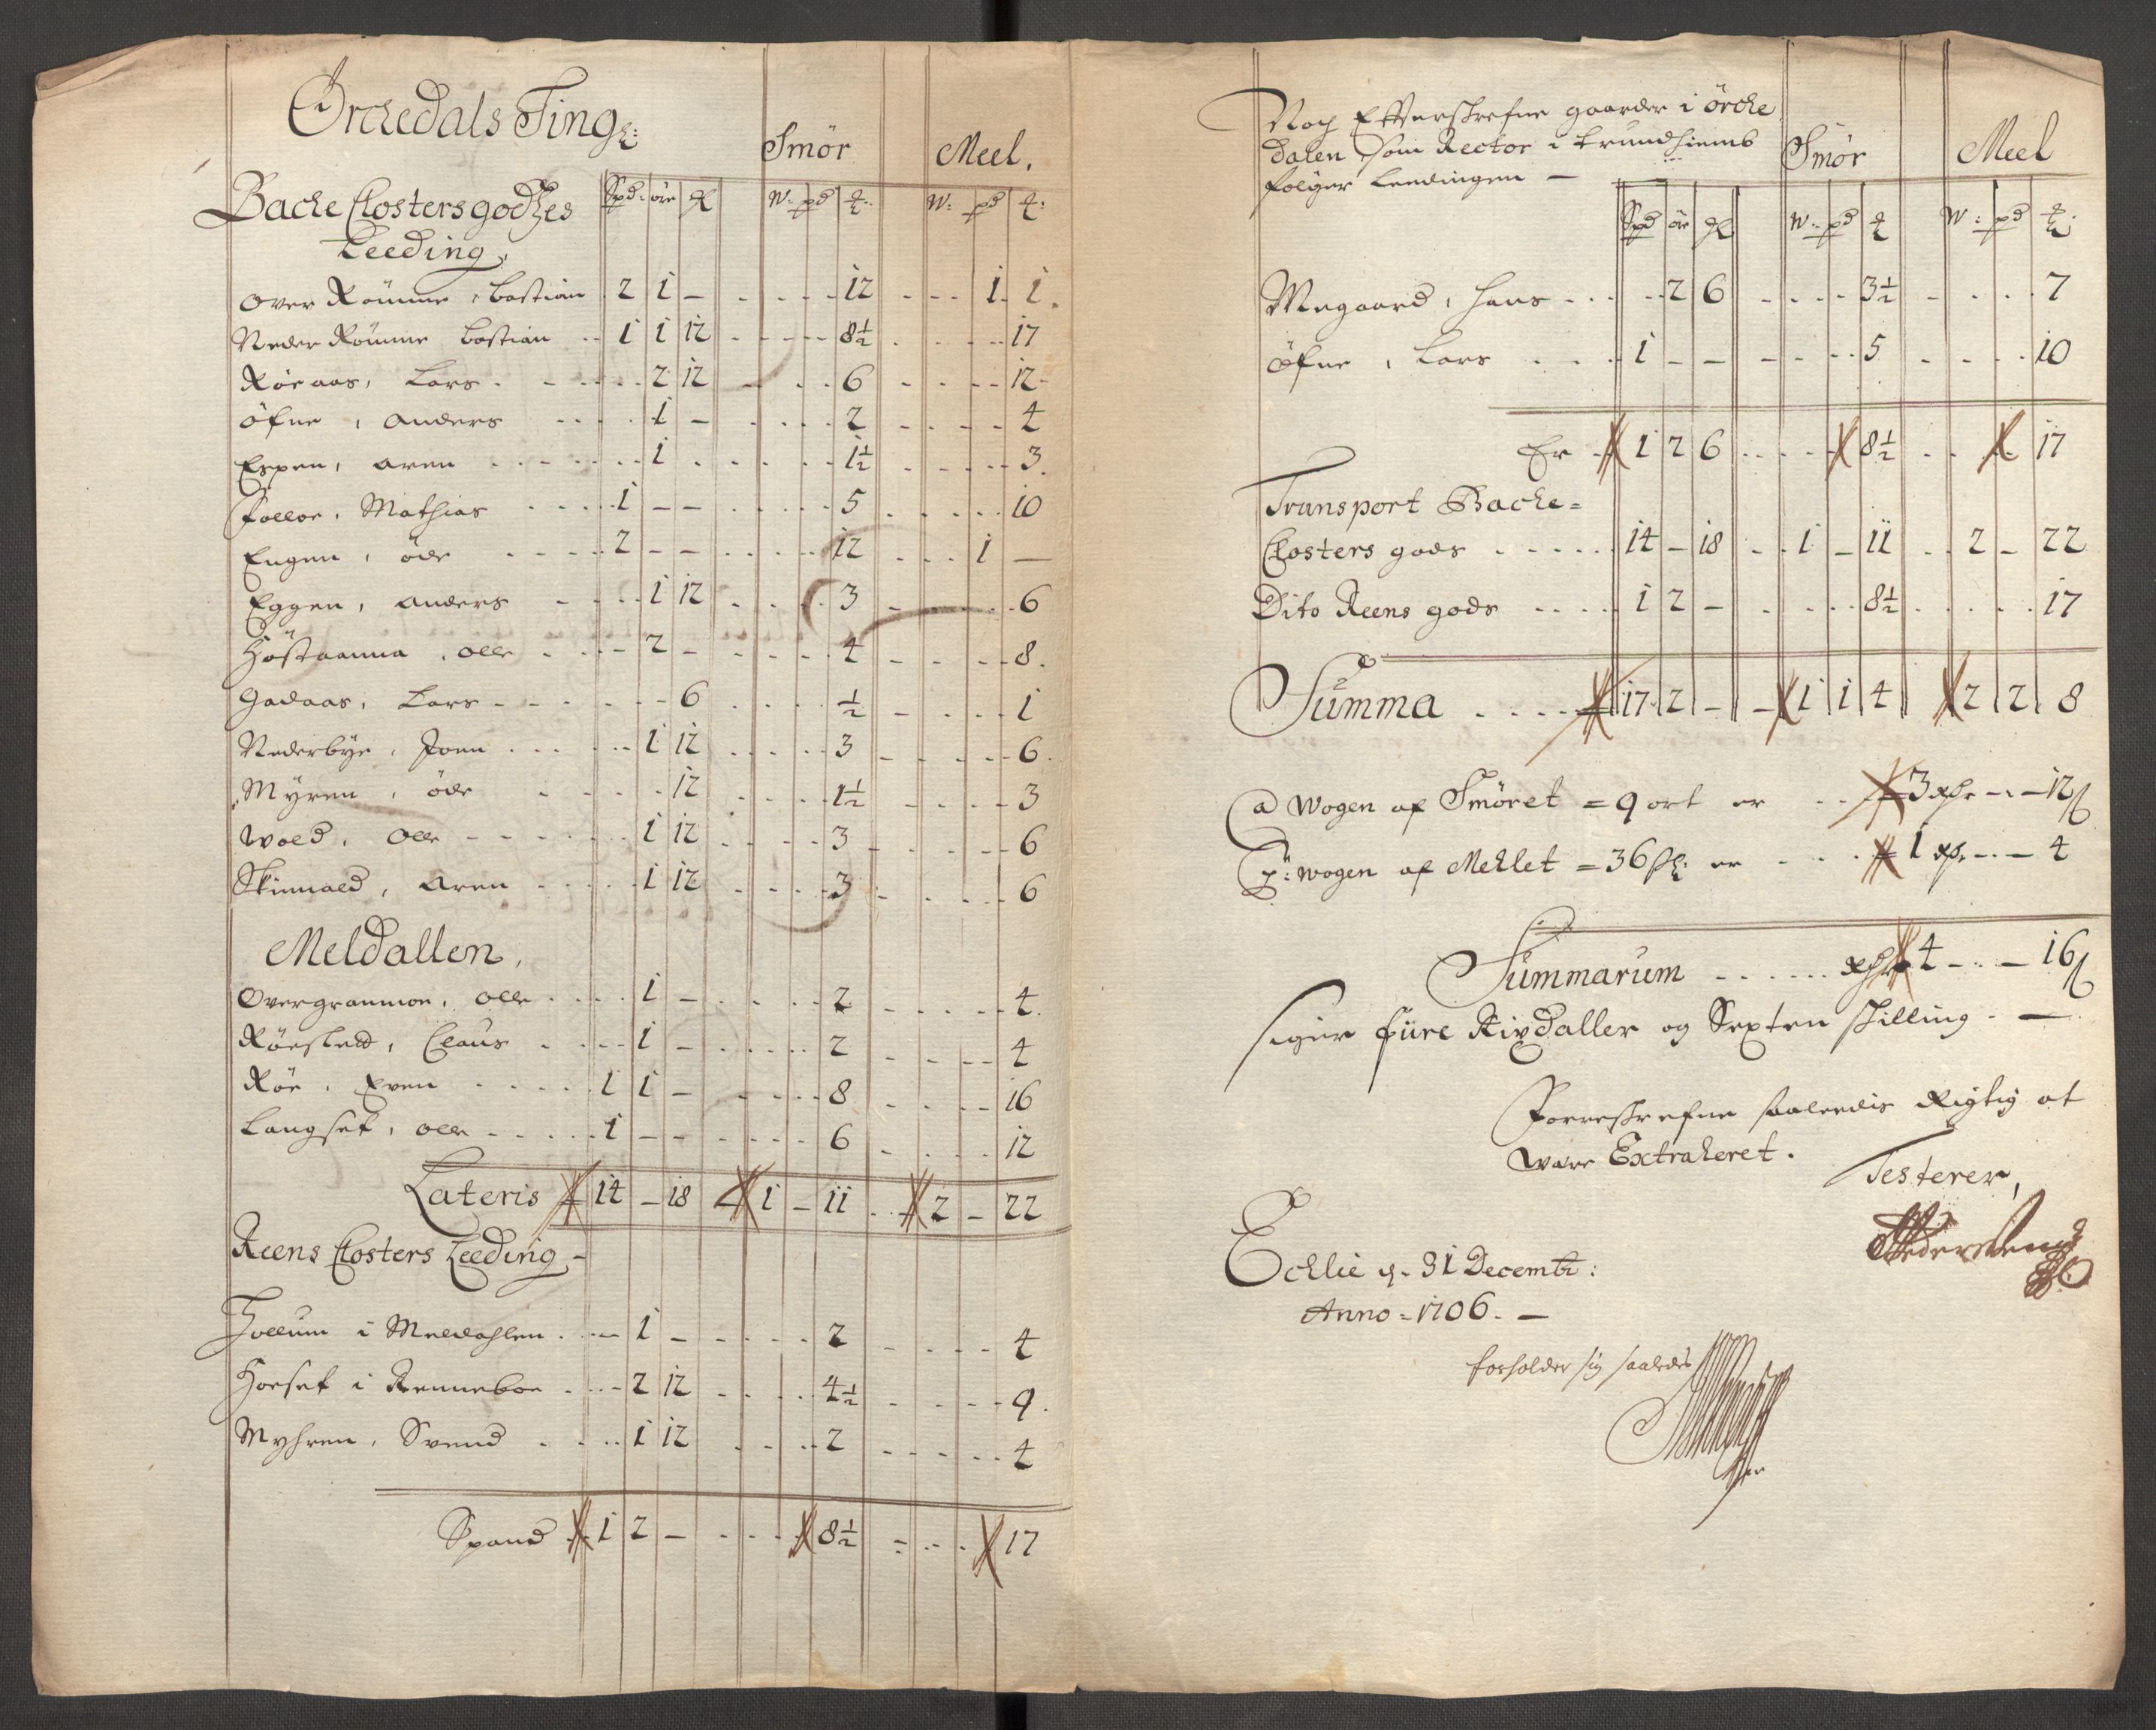 Örckedals Ting
Smör Meel.
Backe Closters godtzes Spd: öre W: pd W: pd
Leeding,
Over Römme, Bastian 2 1 – 12 1 1
Neder Römme Bastian 1 1 12 8½ 17
Röeaas, Lars 2 12 6 12
Öfne, Anders 1 – 2 4
Espen, Aren 1 1½ 3
Folloe, Mathias 1 – – 5 10
Engen, öde 2 – – 12 1 –
Eggen, Anders 1 12 3 6
Höstaanna, Olle 2 – 4 8
Gadaas, Lars 6 ½ 1
Nederbÿe, Joen 1 12 3 6
Mÿren, öde 12 1½ 3
Wold, Olle 1 12 3 6
Skinnald, Aren 1 12 3 6
Meldallen,
Overgrammoe, Olle 1 – 2 4
Röeslett, Claus 1 – 2 4
Röe, Even 1 1 – 8 16
Langset, Olle 1 – – 6 12
Lateris 14 – 18 1 – 11 2 – 22
Reens Closters Leeding –
Jollum i Meldahlen 1 – 2 4
Hoeset i Renneboe 2 12 4½ 9
Myhren, Svend 1 12 2 4
Spand 1 2 – 8½ 17
Noch Efterskrefne gaarder i örcke
dalen, som Rector i Trundhiemb Smör Meel
fölger Leedingen –
Spd öre W: pd W: pd
Megaard, Hans 2 6 3½ 7
Öfne, Lars 1 – – 5 10
Er 1 2 6 8½ 17
Transport Backe=
Closters gods 14 – 18 1 – 11 2 – 22
Dito Reens gods 1 2 – 8½ 17
Summa 17 2 – 1 1 4 2 2 8
a Wogen af Smöret = 9 ort er 3 – 12
p: Wogen af Mehlet = 36 er 1 – 4
Summarum 4 – 16
siger fiire Rixdaller og Sexten skilling. –
Forreskrefne saaledis Rigtig at
were Extraheret.
Testerer,
Ecklie d. 31 Decembr:
Anno = 1706. –
forholder sig saaledes